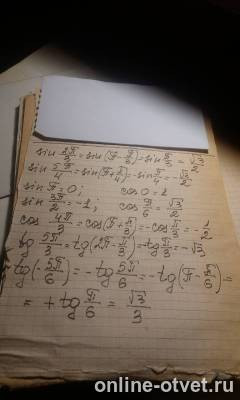 sin 2π/3 = sin(π - π/3) = sin π/3 = √3/2
sin 5π/4 = sin(π + π/4) = -sin π/4 = -√2/2
sin π = 0; cos 0 = 1
sin 3π/2 = -1; cos π/6 = √3/2
cos 4π/3 = cos(π + π/3) = -cos π/3 = -1/2
tg 5π/3 = tg(2π - π/3) = -tg π/3 = -√3
tg(-5π/6) = -tg 5π/6 = -tg(π - π/6) =
= + tg π/6 = √3/3
online-otvet.ru